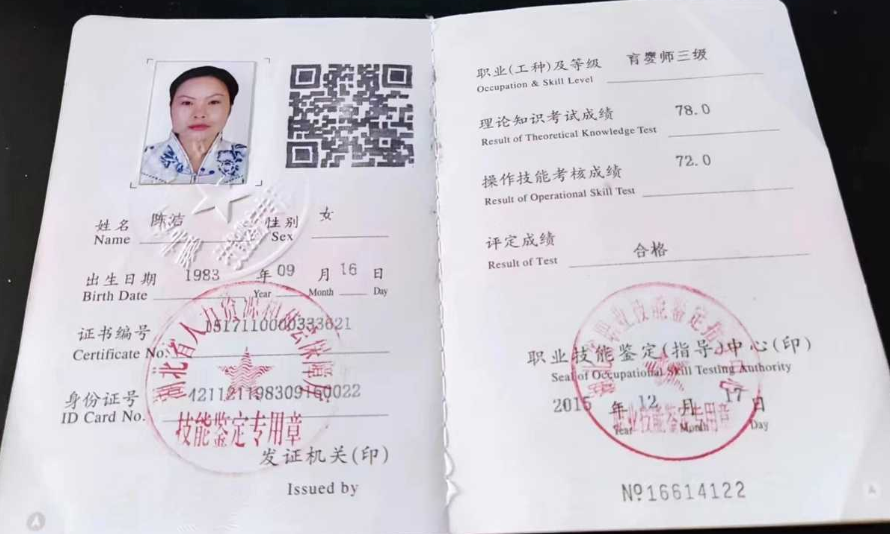 姓名 陈洁 性别 女
Name Sex
出生日期 1983 年 09 月 16 日
Birth Date Year Month Day
证书编号 0517110000333621
Certificate No.
身份证号 421121198309160022
ID Card No.
湖北省人力资源和社会保障厅
技能鉴定专用章
发证机关(印)
Issued by
职业(工种)及等级 育婴师三级
Occupation & Skill Level
理论知识考试成绩 78.0
Result of Theoretical Knowledge Test
操作技能考核成绩 72.0
Result of Operational Skill Test
评定成绩 合格
Result of Test
职业技能鉴定(指导)中心(印)
Seal of Occupational Skill Testing Authority
2015 年 12 月 17 日
Year Month Day
职业技能鉴定专用章
№16614122